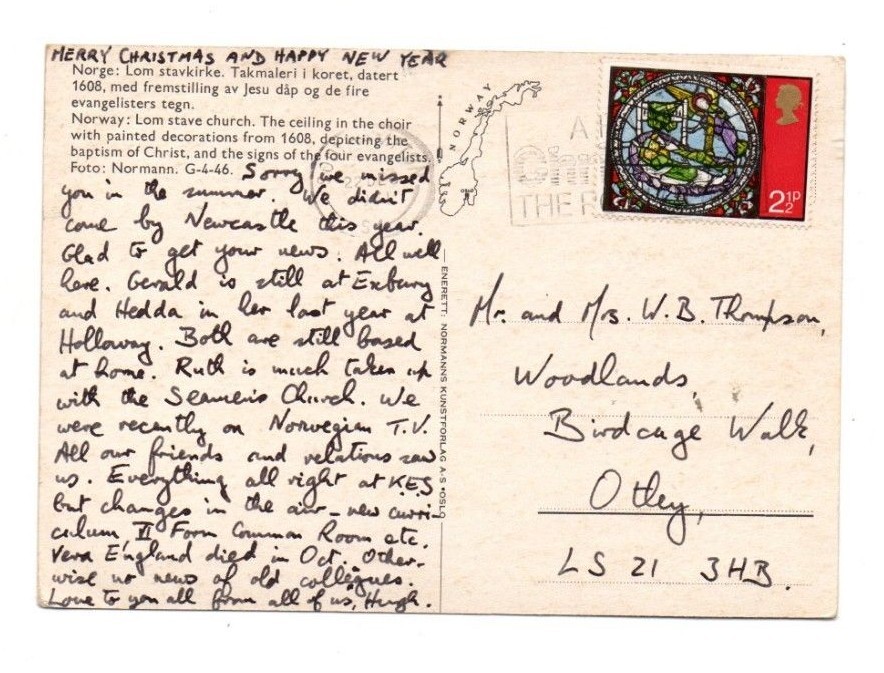 MERRY CHRISTMAS AND HAPPY NEW YEAR
Norge: Lom stavkirke. Takmaleri i koret, datert
1608, med fremstilling av Jesu dåp og de fire
evangelisters tegn.
Norway: Lom stave church. The ceiling in the choir
with painted decorations from 1608, depicting the
baptism of Christ, and the signs of the four evangelists.
Foto: Normann. G-4-46.
Sorry we missed
you in the summer. We didn't
come by Newcastle this year.
Glad to get your news. All well
here. Gerald is still at Exbury
and Hedda in her last year at
Holloway. Both are still based
at home. Ruth is much taken up
with the Seamen's Church. We
were recently on Norwegian T.V.
All our friends and relations saw
us. Everything all right at KES
but changes in the air – new curri-
culum VI Form Common Room etc.
Vera England died in Oct. Other-
wise no news of old collegues.
Love to you all from all of us, Hugh.
ENERETT: NORMANNS KUNSTFORLAG A-S • OSLO
NORWAY
THE
2½P
Mr. and Mrs. W. B. Thompson,
Woodlands,
Birdcage Walk,
Otley,
LS 21 3HB.